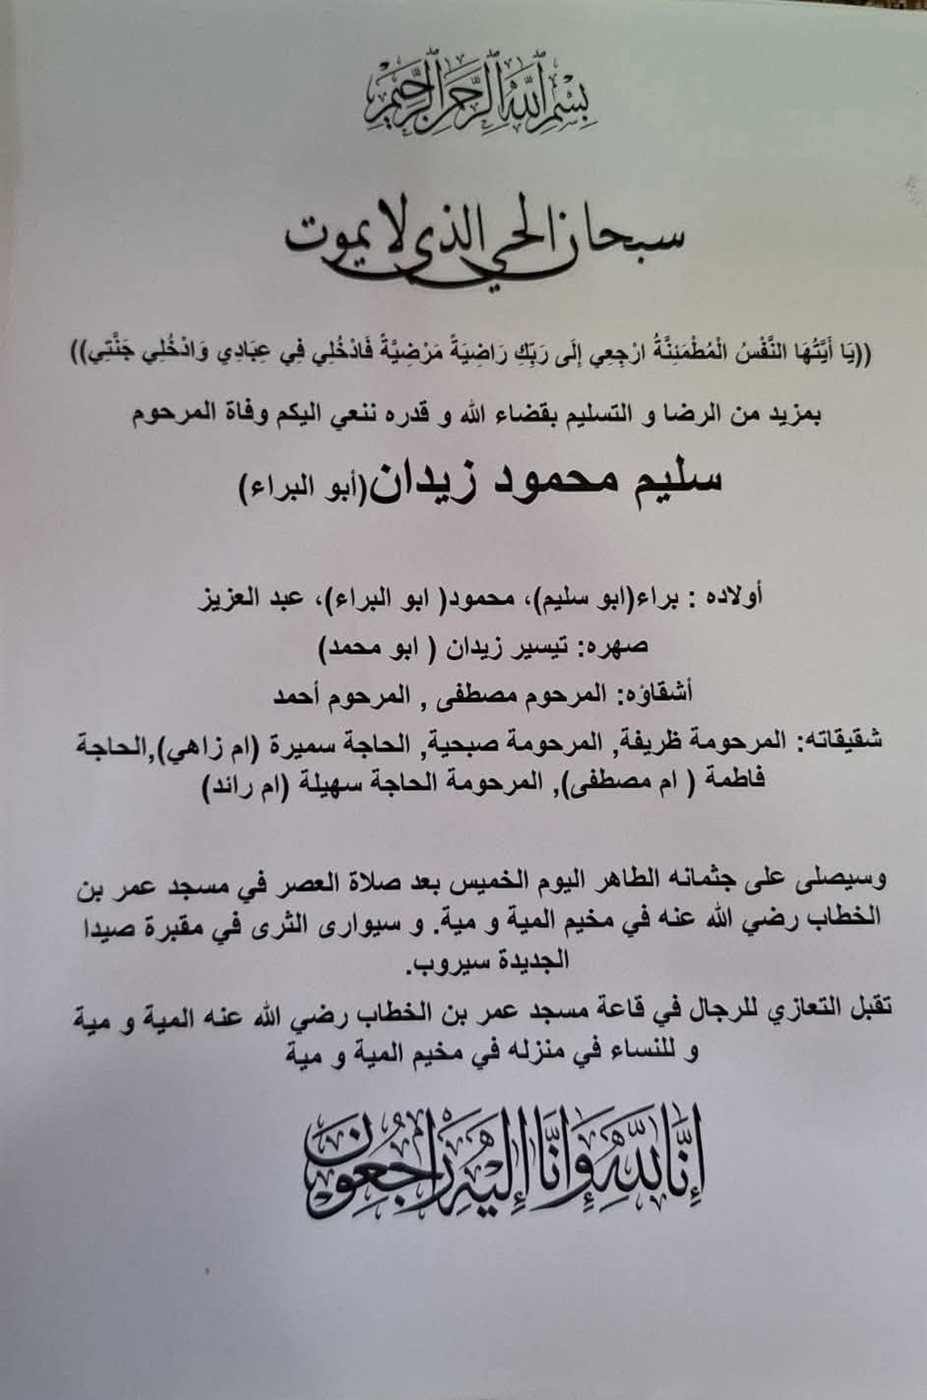 بسم الله الرحمن الرحيم
سبحان الحي الذي لا يموت
((يَا أَيَّتُهَا النَّفْسُ الْمُطْمَئِنَّةُ ارْجِعِي إِلَى رَبِّكِ رَاضِيَةً مَرْضِيَّةً فَادْخُلِي فِي عِبَادِي وَادْخُلِي جَنَّتِي))
بمزيد من الرضا و التسليم بقضاء الله و قدره ننعي اليكم وفاة المرحوم
سليم محمود زيدان(أبو البراء)
أولاده : براء(ابو سليم)، محمود( ابو البراء)، عبد العزيز
صهره: تيسير زيدان ( ابو محمد)
أشقاؤه: المرحوم مصطفى , المرحوم أحمد
شقيقاته: المرحومة ظريفة, المرحومة صبحية, الحاجة سميرة (ام زاهي),الحاجة
فاطمة ( ام مصطفى), المرحومة الحاجة سهيلة (ام رائد)
وسيصلى على جثمانه الطاهر اليوم الخميس بعد صلاة العصر في مسجد عمر بن
الخطاب رضي الله عنه في مخيم المية و مية. و سيوارى الثرى في مقبرة صيدا
الجديدة سيروب.
تقبل التعازي للرجال في قاعة مسجد عمر بن الخطاب رضي الله عنه المية و مية
و للنساء في منزله في مخيم المية و مية
إنا لله وإنا إليه راجعون